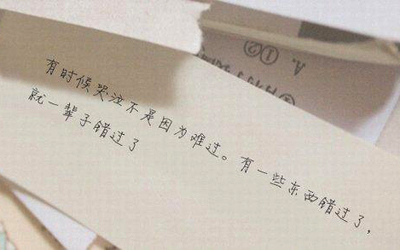 有时候哭泣不是因为难过。有一些东西错过了，
就一辈子错过了
A. ①②